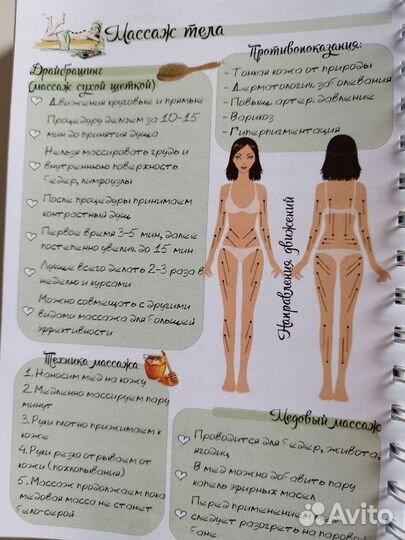 Массаж тела
Драйбрашинг
(массаж сухой щеткой)
Движения круговые и прямые
Процедуру делаем за 10-15
мин до принятия душа
Нельзя массировать грудь и
внутреннюю поверхность
бедер, лимфоузлы
После процедуры принимаем
контрастный душ
Первое время 3-5 мин, далее
постепенно увелич. до 15 мин
Лучше всего делать 2-3 раза в
неделю и курсами
Можно совмещать с другими
видами массажа для большей
эффективности
Противопоказания:
- Тонкая кожа от природы
- Дерматологич. заболевания
- Повыш. артер. давление
- Варикоз
- Гиперпигментация
Направления движений
Техника массажа
1. Наносим мед на кожу
2. Медленно массируем пару
минут
3. Руки плотно прижимаем к
коже
4. Руки резко отрываем от
кожи (похлопывания)
5. Массаж продолжаем пока
медовая масса не станет
бело-серой
Медовый массаж
Проводится для бедер, живота,
ягодиц
В мед можно добавить пару
капель эфирных масел
Перед применением мед
следует разогреть на паровой
бане
Avito